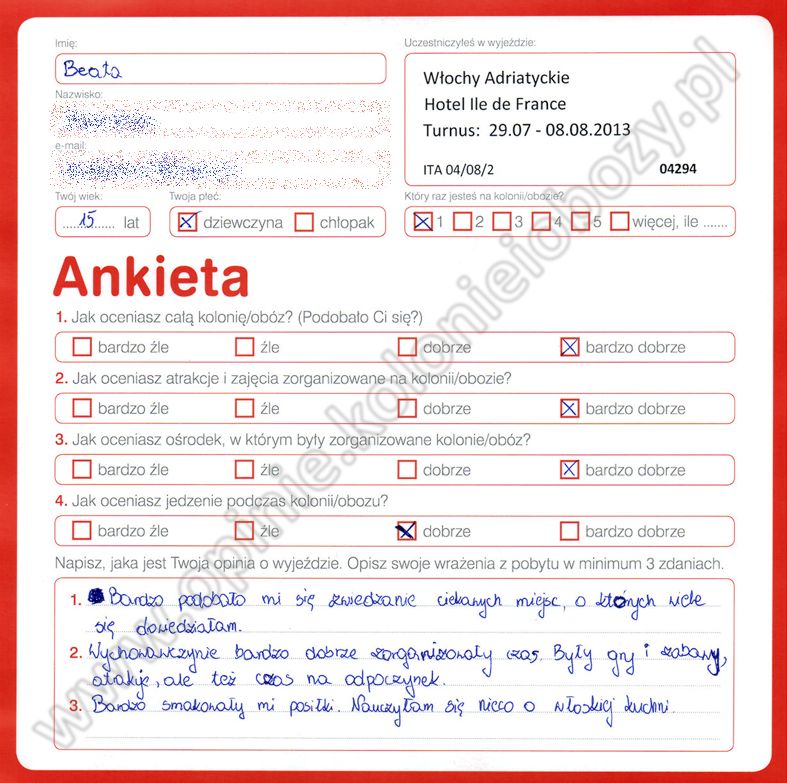 Imię:
Beata
Uczestniczyłeś w wyjeździe:
Włochy Adriatyckie
Hotel Ile de France
Turnus: 29.07 - 08.08.2013
ITA 04/08/2 04294
Nazwisko:
e-mail:
Twój wiek:
15 lat
Twoja płeć:
dziewczyna chłopak
Który raz jesteś na kolonii/obozie?
1 2 3 4 5 więcej, ile .......
Ankieta
1. Jak oceniasz całą kolonię/obóz? (Podobało Ci się?)
bardzo źle źle dobrze bardzo dobrze
2. Jak oceniasz atrakcje i zajęcia zorganizowane na kolonii/obozie?
bardzo źle źle dobrze bardzo dobrze
3. Jak oceniasz ośrodek, w którym były zorganizowane kolonie/obóz?
bardzo źle źle dobrze bardzo dobrze
4. Jak oceniasz jedzenie podczas kolonii/obozu?
bardzo źle źle dobrze bardzo dobrze
Napisz, jaka jest Twoja opinia o wyjeździe. Opisz swoje wrażenia z pobytu w minimum 3 zdaniach.
1. Bardzo podobało mi się zwiedzanie ciekawych miejsc, o których wiele
się dowiedziałam.
2. Wychowawczynie bardzo dobrze zorganizowały czas. Były gry i zabawy,
atrakcje, ale też czas na odpoczynek.
3. Bardzo smakowały mi posiłki. Nauczyłam się nieco o włoskiej kuchni.
www.opinie.kolonieiobozy.pl